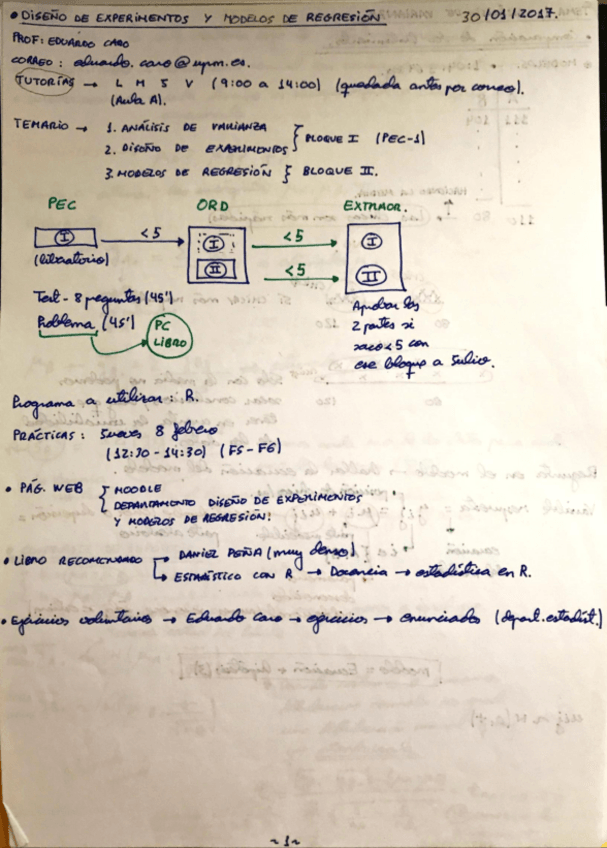 • DISEÑO DE EXPERIMENTOS Y MODELOS DE REGRESIÓN 30/01/2017.
PROF: EDUARDO CARO
CORREO: eduardo.caro@upm.es.
TUTORÍAS → L M J V (9:00 a 14:00) (quedada antes por correo).
(Aula A).
TEMARIO → 1. ANÁLISIS DE VARIANZA
2. DISEÑO DE EXPERIMENTOS } BLOQUE I (PEC-1)
3. MODELOS DE REGRESIÓN } BLOQUE II.
PEC ORD EXTRAOR.
I <5 I <5 I
(liberatorio) II <5 II
Test - 8 preguntas (45')
Problema (45') PC LIBRO
Aprobar las
2 partes si
saco <5 con
ese bloque a Julio.
Programa a utilizar: R.
PRÁCTICAS: Jueves 8 febrero
(12:30 - 14:30) (F5 - F6)
• PÁG. WEB { MOODLE
DEPARTAMENTO DISEÑO DE EXPERIMENTOS
Y MODELOS DE REGRESIÓN.
• LIBRO RECOMENDADO → DANIEL PEÑA (muy denso)
→ ESTADÍSTICO CON R → Docencia → estadística en R.
• Ejercicios voluntarios → Eduardo Caro → ejercicios → enunciados (depart. estadíst.)
~1~